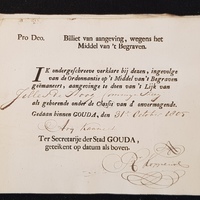 Pro Deo. Billiet van aangeving, wegens het
Middel van 't Begraven.
IK ondergeschreve verklare bij dezen, ingevolge
van de Ordonnantie op 't Middel van 't Begraven
geëmaneert, aangevinge te doen van 't Lijk van
als gehorende onder de Classis van d' onvermogende.
Gedaan binnen GOUDA, den 31 October 1805
Ter Secretarije der Stad GOUDA,
geteikent op datum als boven.